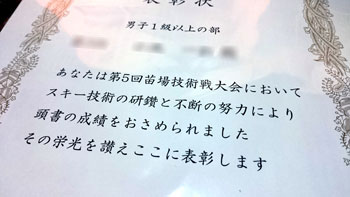 表彰状
男子1級以上の部
あなたは第5回苗場技術戦大会において
スキー技術の研鑽と不断の努力により
頭書の成績をおさめられました
その栄光を讃えここに表彰します